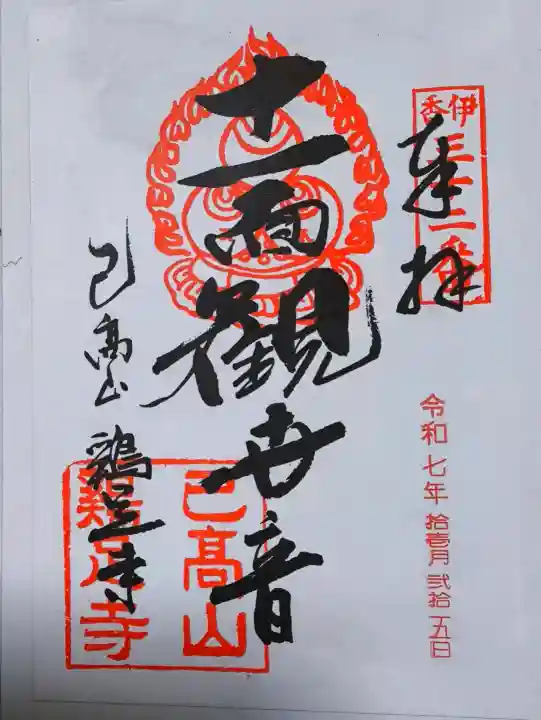 伊香三十三番
奉拝
令和七年 拾壱月 弐拾五日
十一面観世音
己高山
鶏足寺
己高山
鶏足寺